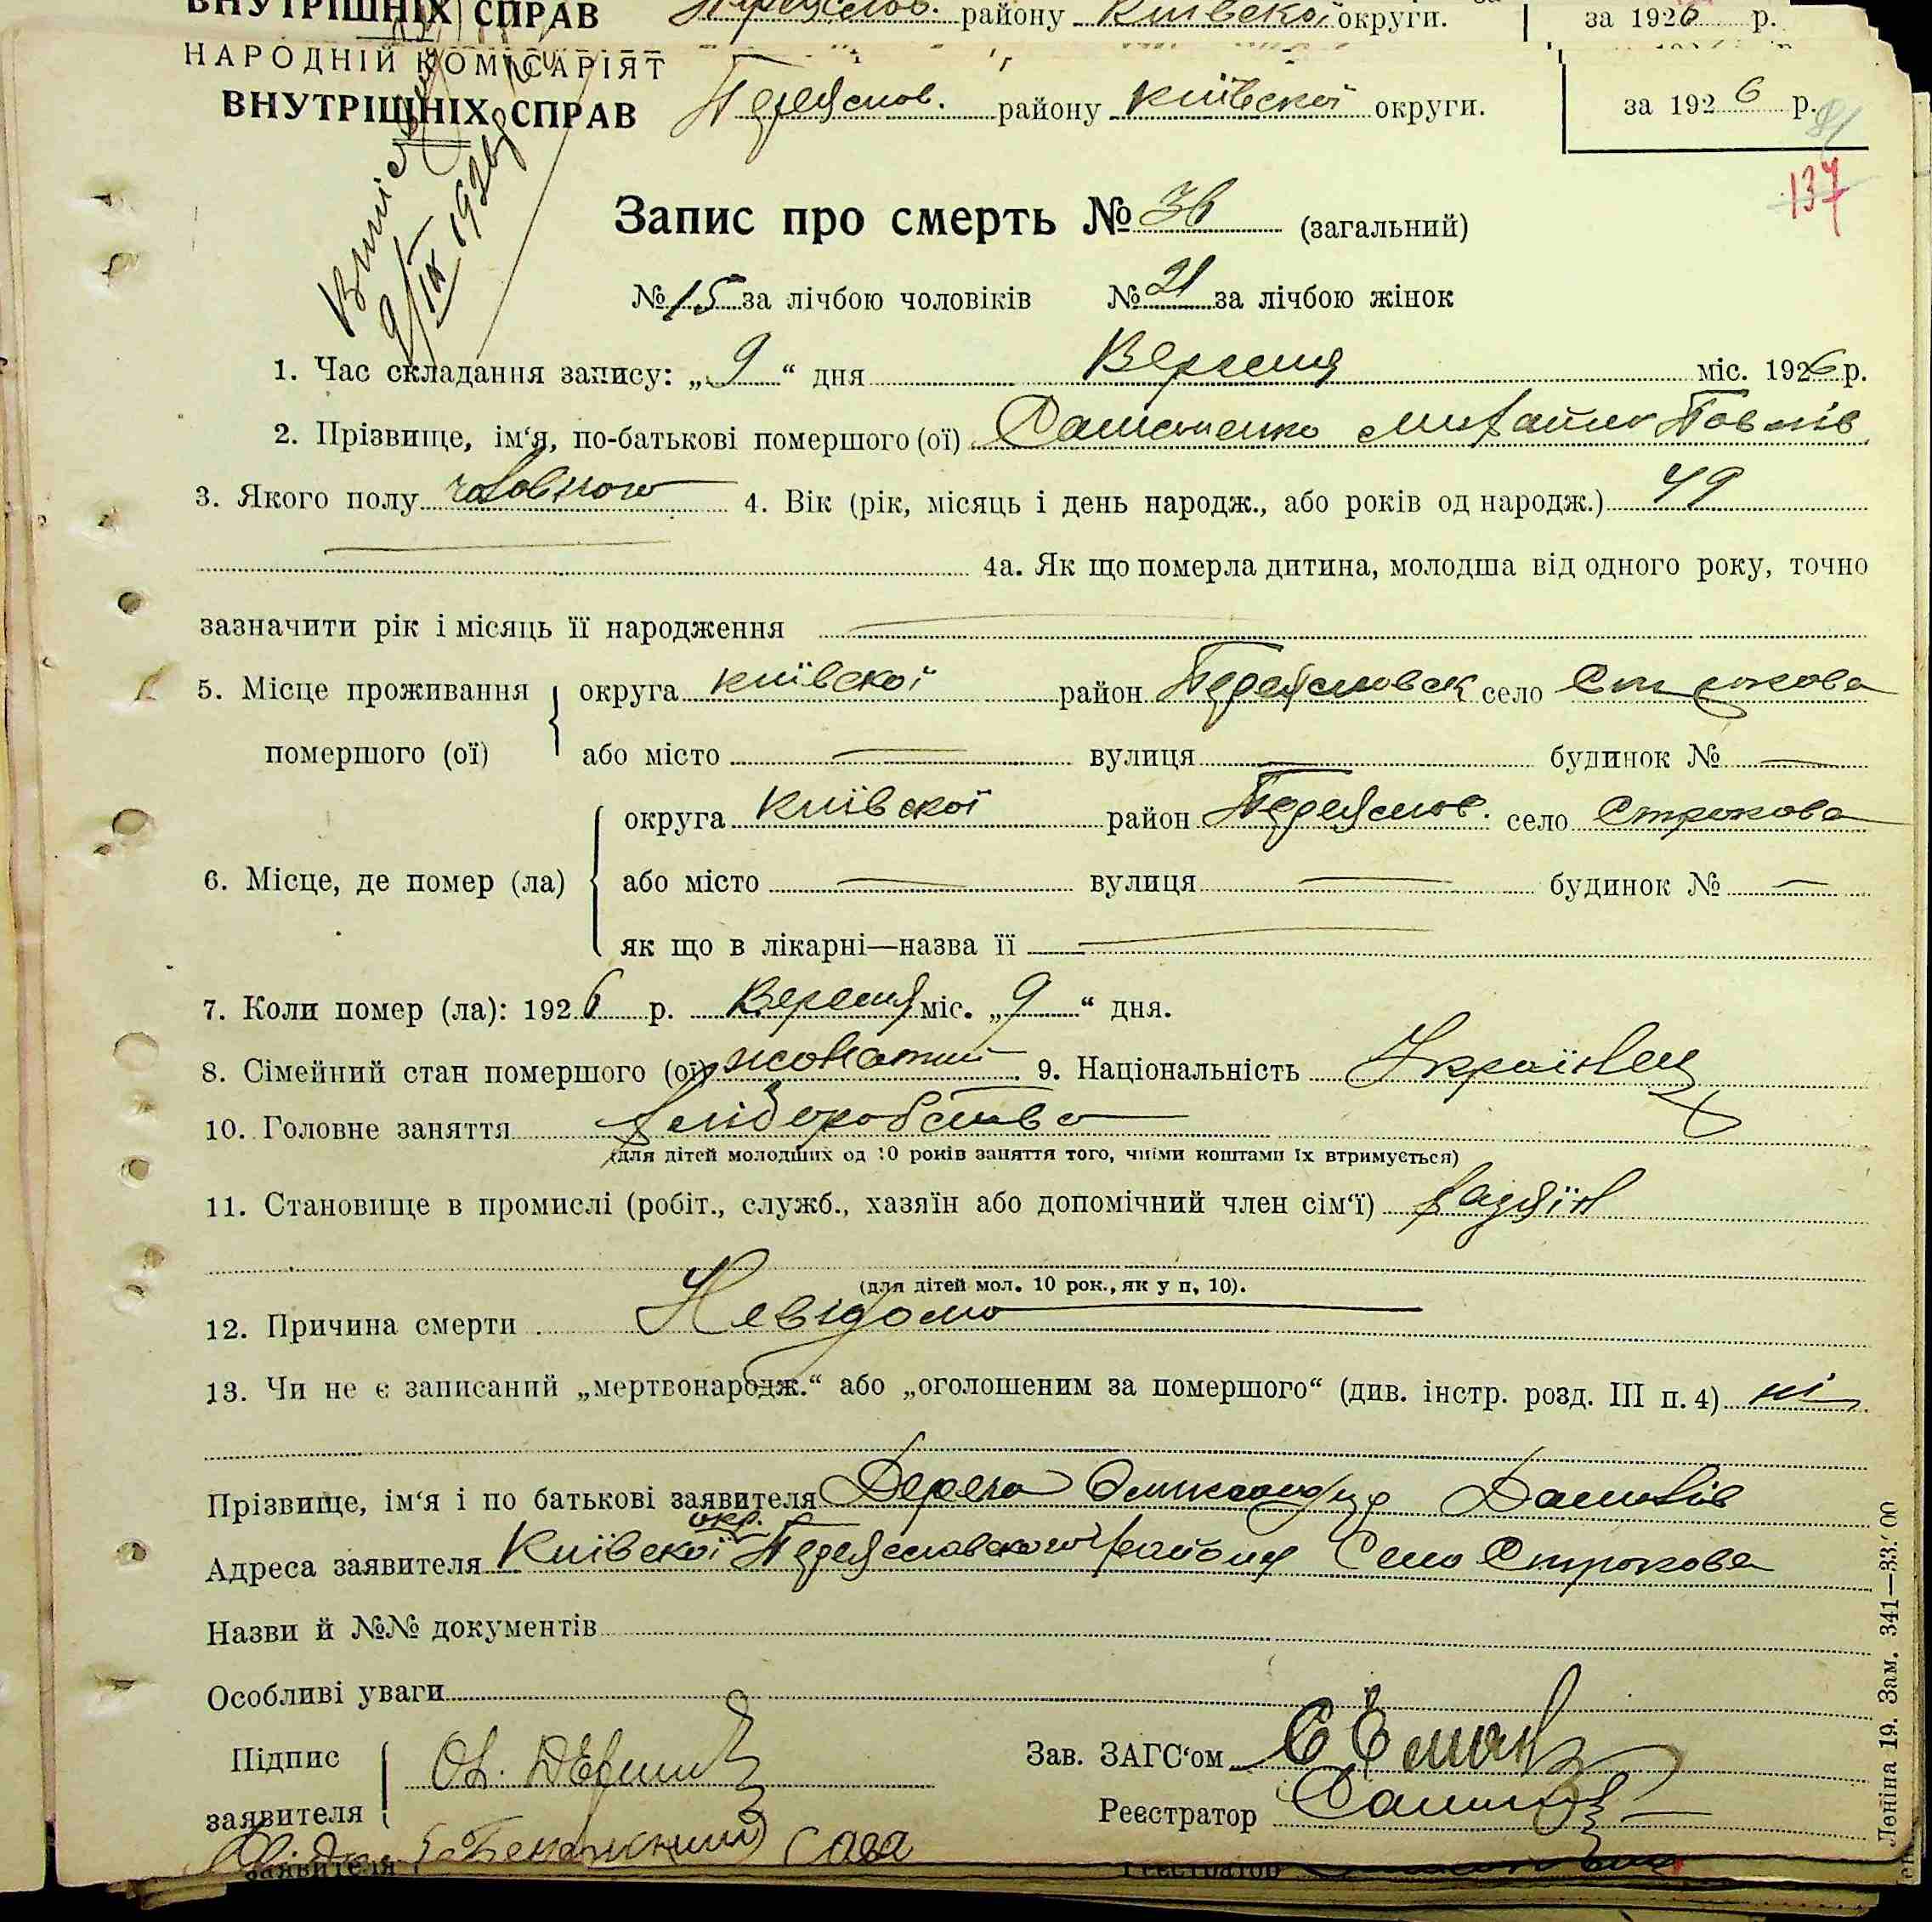 ВНУТРІШНІХ СПРАВ району Київскої округи. за 1926 р.
НАРОДНІЙ КОМІСАРІЯТ
ВНУТРІШНІХ СПРАВ Переяслов. району Київскої округи. за 1926 р.
137
9/IX 1926 р
Запис про смерть № 36 (загальний)
№ 15 за лічбою чоловіків № 21 за лічбою жінок
1. Час складання запису: „9“ дня Вересня міс. 1926 р.
2. Прізвище, ім‘я, по-батькові помершого (ої) Михайло Павлів
3. Якого полу 4. Вік (рік, місяць і день народж., або років од народж.) 49
4а. Як що померла дитина, молодша від одного року, точно
зазначити рік і місяць її народження
5. Місце проживання помершого (ої) округа Київскої район Переясловск село Строкова
або місто вулиця будинок №
6. Місце, де помер (ла) округа Київскої район Переяслов. село Строкова
або місто вулиця будинок №
як що в лікарні—назва її
7. Коли помер (ла): 1926 р. Вересня міс. „9“ дня.
8. Сімейний стан помершого (ої) жонатий 9. Національність Українец
10. Головне заняття хліборобство
(для дітей молодших од 10 років заняття того, чиїми коштами їх втримується)
11. Становище в промислі (робіт., служб., хазяїн або допомічний член сім‘ї) хазяїн
(для дітей мол. 10 рок., як у п, 10).
12. Причина смерти Невідомо
13. Чи не є записаний „мертвонародж.“ або „оголошеним за помершого“ (див. інстр. розд. III п. 4) ні
Прізвище, ім‘я і по батькові заявителя
Адреса заявителя Київскої окр. Переясловского района Село Строкова
Назви й №№ документів
Особливі уваги
Підпис заявителя
Зав. ЗАГС‘ом
Реєстратор
Сава
заявителя Реєстратор
Леніна 19. Зам. 341—33.